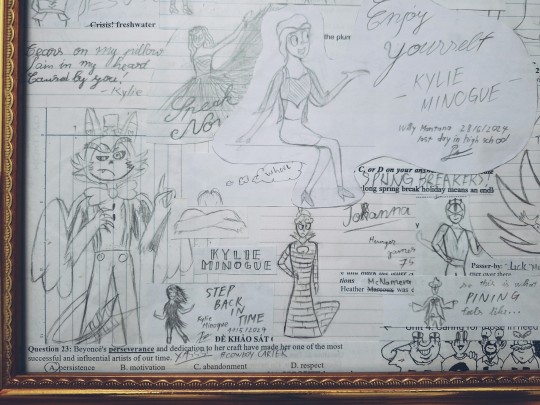 Crisis! freshwater
the plur
Tears on my pillow
Pain in my heart
Caused by you!
- Kylie
Enjoy
Yourself
- KYLIE
MINOGUE
28/5/2024
last day in high school
Speak
Now
C, or D on your ans
SPRING BREAKERS!
long spring break holiday means an end
Johanna
Hunger
games
75
KYLIE
MINOGUE
STEP
BACK
IN
TIME
Kylie
Minogue
tions McNamera
Heather was
Passer-by: "Jack
So this is what
PINING
feels like...
ĐỀ KHẢO SÁT
Question 23: Beyoncé's perseverance and dedication to her craft have made her one of the most
successful and influential artists of our time.
#COWBOY CARTER
A. persistence B. motivation C. abandonment D. respect
Unit 4: Caring for those in need